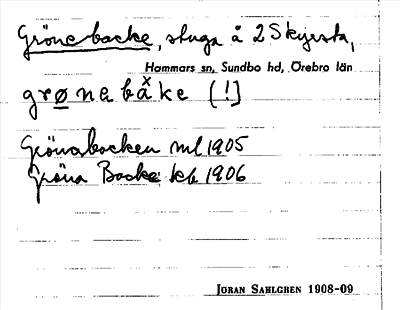 Grönebacke, stuga å 2 Skyrsta,
Hammars sn, Sundbo hd, Örebro län
grønebåke [!]
Grönabacken ml 1905
Gröna Backe kb 1906
JORAN SAHLGREN 1908-09